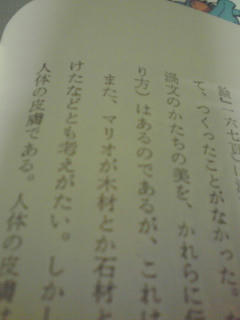 論」一六七頁に
て、つくったことがなかった。
渦文のかたちの美を、かれらに伝
り方）はあるのであるが、これは
また、マリオが木材とか石材と
けたなどとも考えがたい。しかし
人体の皮膚である。人体の皮膚は